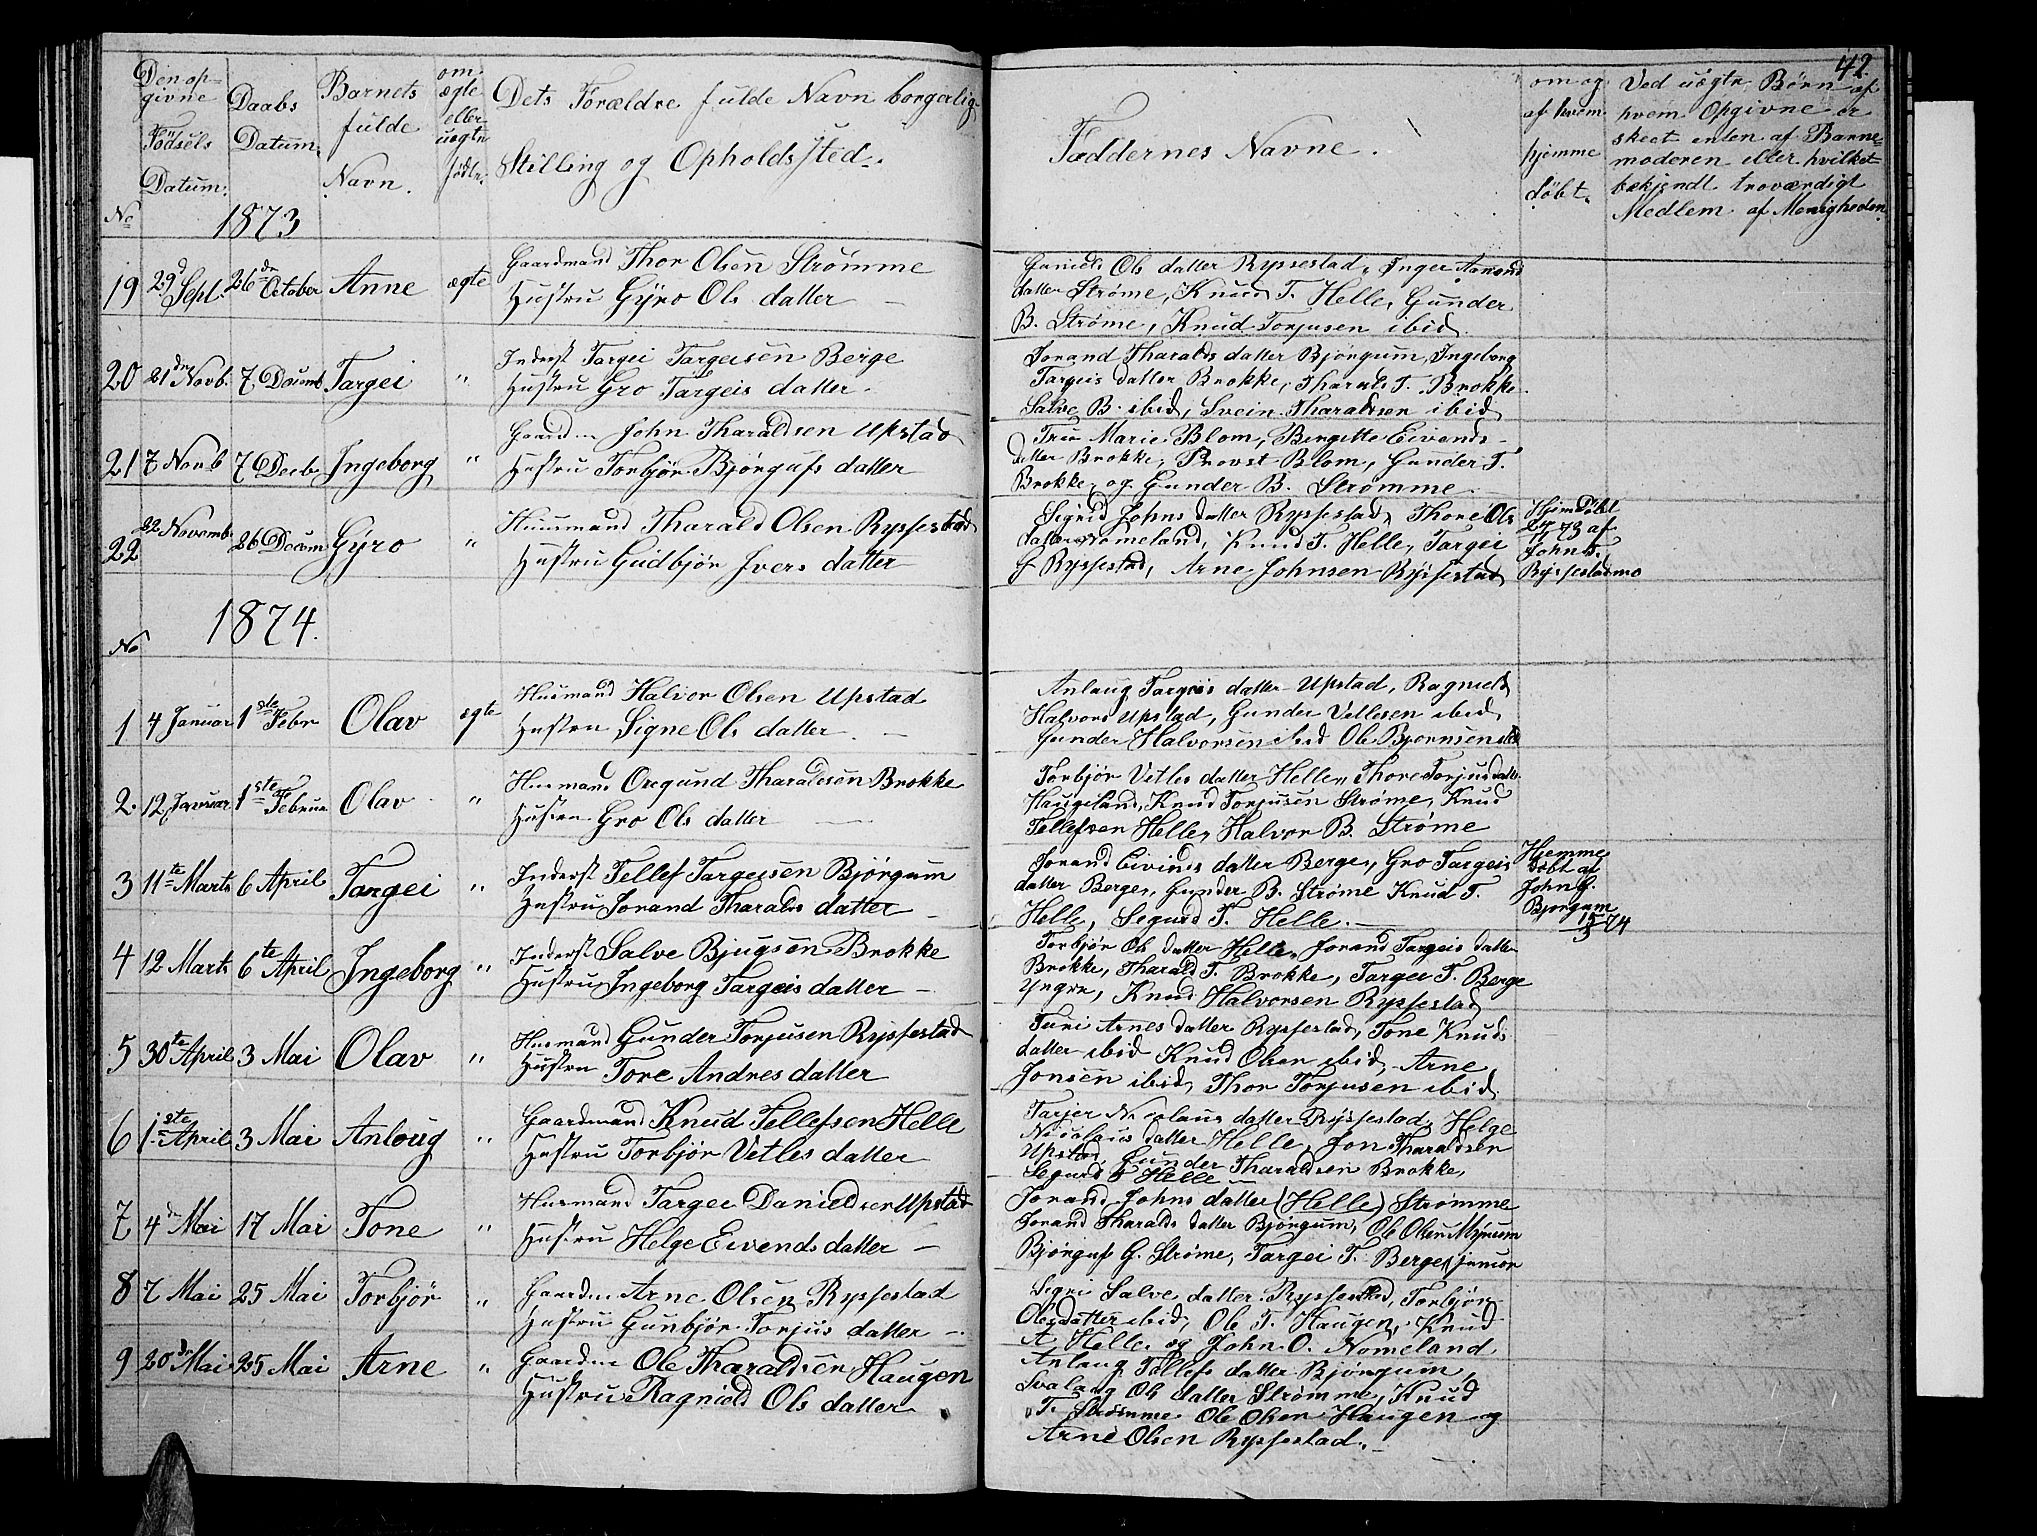 42.
Den op-
givne
Födsels
Datum.
Daabs
Datum.
Barnets
fulde
Navn.
om
ægte
eller
uægte
födte.
Dets Forældre fulde Navn borgerlig
Stilling og Opholdssted.
Faddernes Navne.
om og
af hvem
hjemme
döbt.
Ved uægte Børn af
hvem Opgivne er
skeet enten af Barne-
moderen eller hvilket
bekjendt troværdigt
Medlem af Menigheden
No 1873
19 29d Sept. 26de October Anne ægte Gaardmand Thor Olsen Strømme
Hustru Gyro Ols datter —
Ols datter Ryssestad, Inger Aanond
datter Strøme, Knud T. Helle, Gunder
B. Strøme, Knud Torjusen ibid
20 21de Novb. 7 Decemb Targei " Inderst Targei Targeisen Berge
Hustru Gro Targeis datter.
Jorand Tharalds datter Bjørgum, Ingeborg
Targeis datter Brokke, Tharald T. Brokke
Salve B. ibid, Svein Tharaldsen ibid
21 7 Novb 7 Decb Ingeborg " Gaardm John Tharaldsen Upstad
Hustru Torbjør Bjørgufs datter
Fru Marie Blom, Bergitte Eivends-
datter Brokke, Provst Blom, Gunder T.
Brokke, og Gunder B. Strømme
22 22 Novemb 26 Decem Gyro " Husmand Tharald Olsen Ryssestad
Hustru Gudbjør Ivers datter
Sigrid Johns datter Ryssestad, Thore Ols
datter Nomeland, Knud T. Helle, Targei
G Ryssestad, Arne Johnsen Ryssestad
Hjem Döbt
73 af
John T.
Ryssestadmo
No 1874.
1 4 Januar 1ste Febr Olav ægte Husmand Halvor Olsen Upstad
Hustru Signe Ols datter. —
Anlaug Targeis datter Upstad, Ragnild
Halvors Upstad, Gunder Vetlesen ibid,
Gunder Halvorsen ibid Ole Bjornsen ibid
2. 12 Januar 1ste Februa Olav " Husmand Ougund Tharaldsen Brokke
Hustru Gro Ols datter —
Torbjør Vetles datter Helle, Thore Torjus datter
Haugeland, Knud Torjusen Strøme, Knud
Tellefsen Helle, Halvor B. Strøme
3 11te Marts 6 April Targei " Inderst Tellef Targeisen Bjørgum
Hustru Jorand Tharalds datter —
Jorand Eivinds datter Berge, Gro Targeis
datter Berge, Gunder B. Strøme Knud T.
Helle, Segurd T. Helle. —
Hjemme
döbt af
John G.
Bjørgum
15/3 74
4 12 Marts 6te April Ingeborg " Inderst Salve Bjugsen Brokke
Hustru Ingeborg Targeis datter —
Torbjør Ols datter Helle, Jorand Targeis datter
Brokke, Tharald T. Brokke, Targei T. Berge
Yngre, Knud Halvorsen Ryssestad
5 30te April 3 Mai Olav " Husmand Gunder Torjusen Ryssestad
Hustru Tore Andres datter
Turi Arnes datter Ryssestad, Tone Knuds
datter ibid Knud Olsen ibid, Arne
Jonsen ibid, Thor Torjusen ibid
6 1ste April 3 Mai Anloug " Gaardmand Knud Tellefsen Helle
Hustru Torbjør Vetles datter
Tarjer Nicolaus datter Ryssestad, Helge
Nicolaus datter Helle, Jon Tharaldsen
Upstad, Gunder Tharaldsen Brokke,
Segurd T Helle —
7 4de Mai 17 Mai Tone " Husmand Targei Danieldsen Upstad
Hustru Helge Eivends datter —
Jorand Johns datter (Helle) Strømme
Jorand Tharalds datter Bjørgum, Ole Olsen Myrum
Bjørguf G. Strøme, Targei T. Berge, junior
8 7 Mai 25 Mai Torbjør " Gaardm Arne Olsen Ryssestad
Hustru Gunbjør Torjus datter —
Sigri Salve datter Ryssestad, Torbjør
Olesdatter ibid, Ole T. Haugen, Knud
A Helle og John O. Nomeland
9 20de Mai 25 Mai Arne " Gaardm Ole Tharaldsen Haugen
Hustru Ragnild Ols datter
Anlaug Tellefs datter Bjørgum,
Svalaug Ols datter Strømme, Knud
T. Strømme Ole Olsen Haugen og
Arne Olsen Ryssestad. —